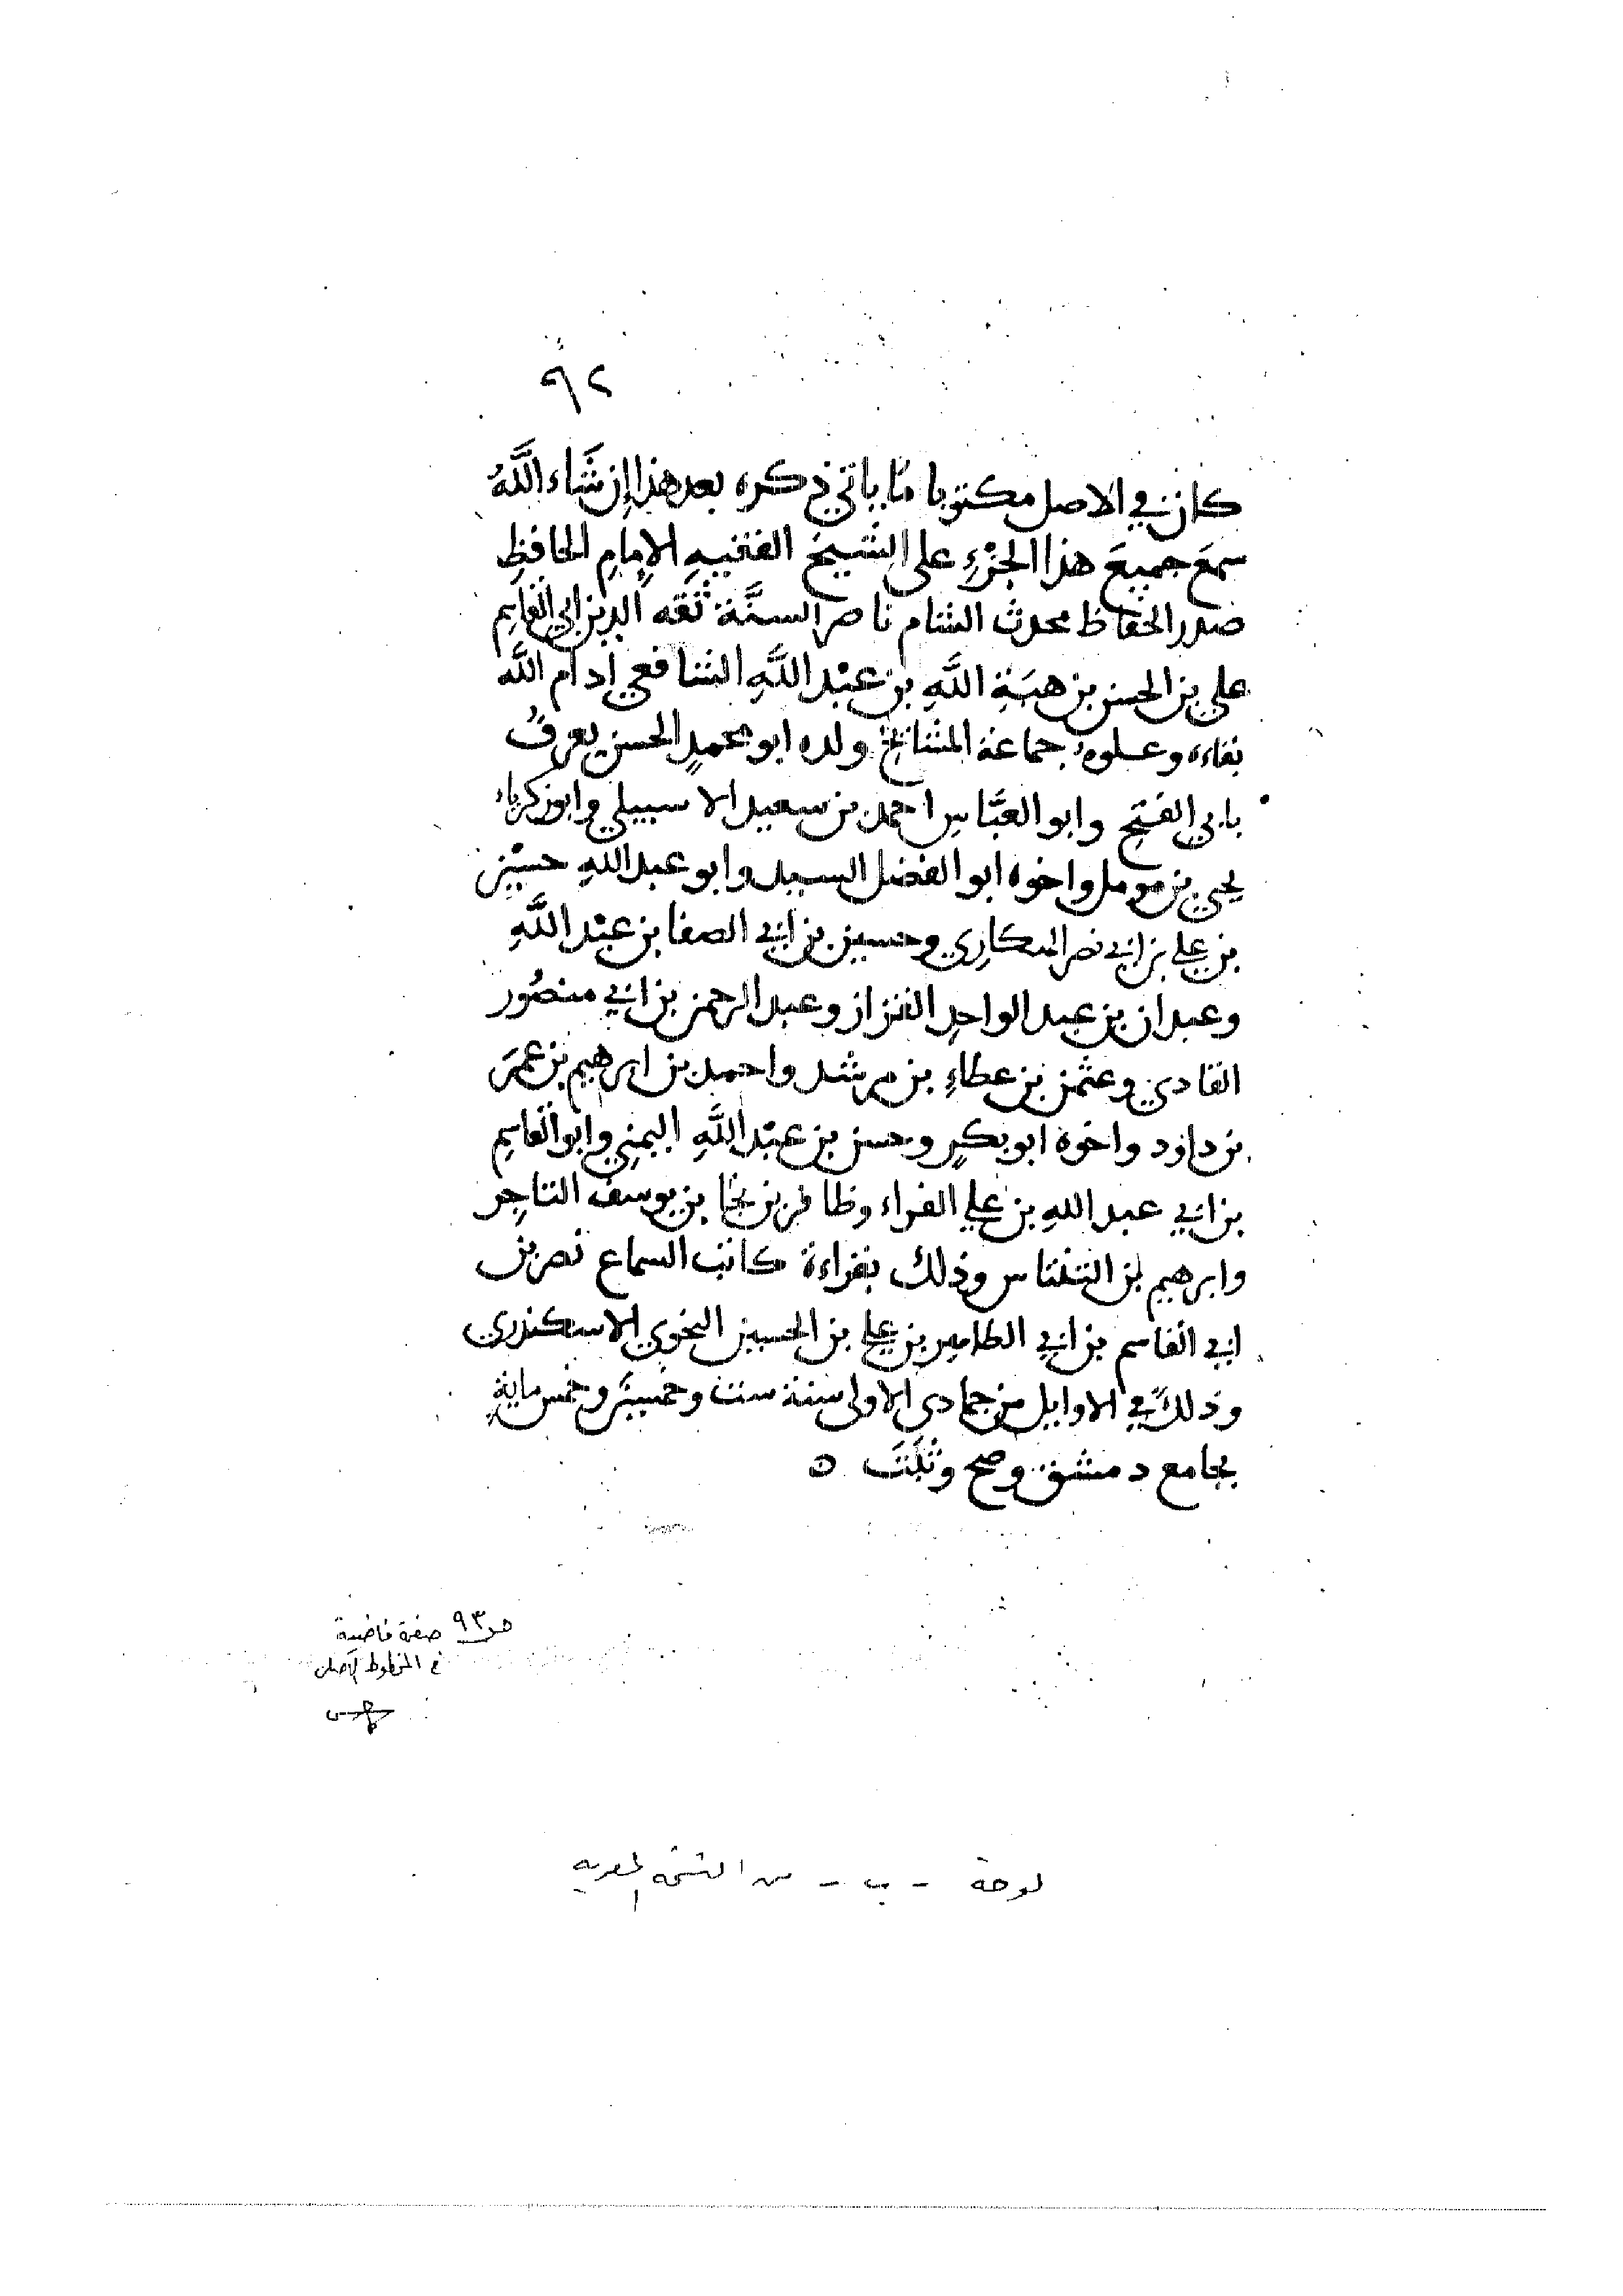 ٩٢
كان في الاصل مكتوبا ما ياتي ذكره بعد هذا إن شَاء اللَّهُ
سمعَ جميعَ هذا الجزْءِ على الشَيخ الفقيهِ الإمامِ الحافظِ
صدر الحفاظ محدث الشام ناصر السنَّة ثقه الدين ابي القاسِم
علي بن الحسن بن هبَةِ اللَّهِ بن عبْد اللَّهِ الشافعي ادام اللَّه
بقاءه وعلوه جماعة المشائخ ولده ابو محمدٍ الحسن يعرفُ
بابي الفتح وابو العبَّاسِ احمد بن سعيد الاسبيلي وابو زكرياء
يحيى بن مومل واخوه ابو الفضل السيد وابو عبد اللهِ حسيْن
بن علي بن ابي نصر الهكارِي وحسين بن ابي الصفا بن عبْد اللَّهِ
وعبدان بن عبد الواحدِ القزاز وعبد الرحمن بن ابي منصُور
القادي وعثمن بن عطاءِ بن مرشد واحمد بن ابرهيم بن عمَرَ
بن داود واخوه ابو بكرٍ وحسن بن عبْد اللَّهِ اليمني وابو القاسِم
بن ابي عبد اللهِ بن علي الفراء وظافر بن نجا بن يوسف التاجِر
وابرهيم بن وذلك بقراءة كاتب السماع نصر بن
ابي القاسم بن ابي الطاهِر بن علي بن الحسين النحوي الاسكندري
وذلك في الاوايل من جمادى الاولى سنة ست وخمسين وخمس مايةِ
بجامع دمشق وصح وثَبَتَ ٥
ص ٩٣ صفحة فاضية
في المخطوط الأصلى
لوحة - ب - من النسخة المغربية